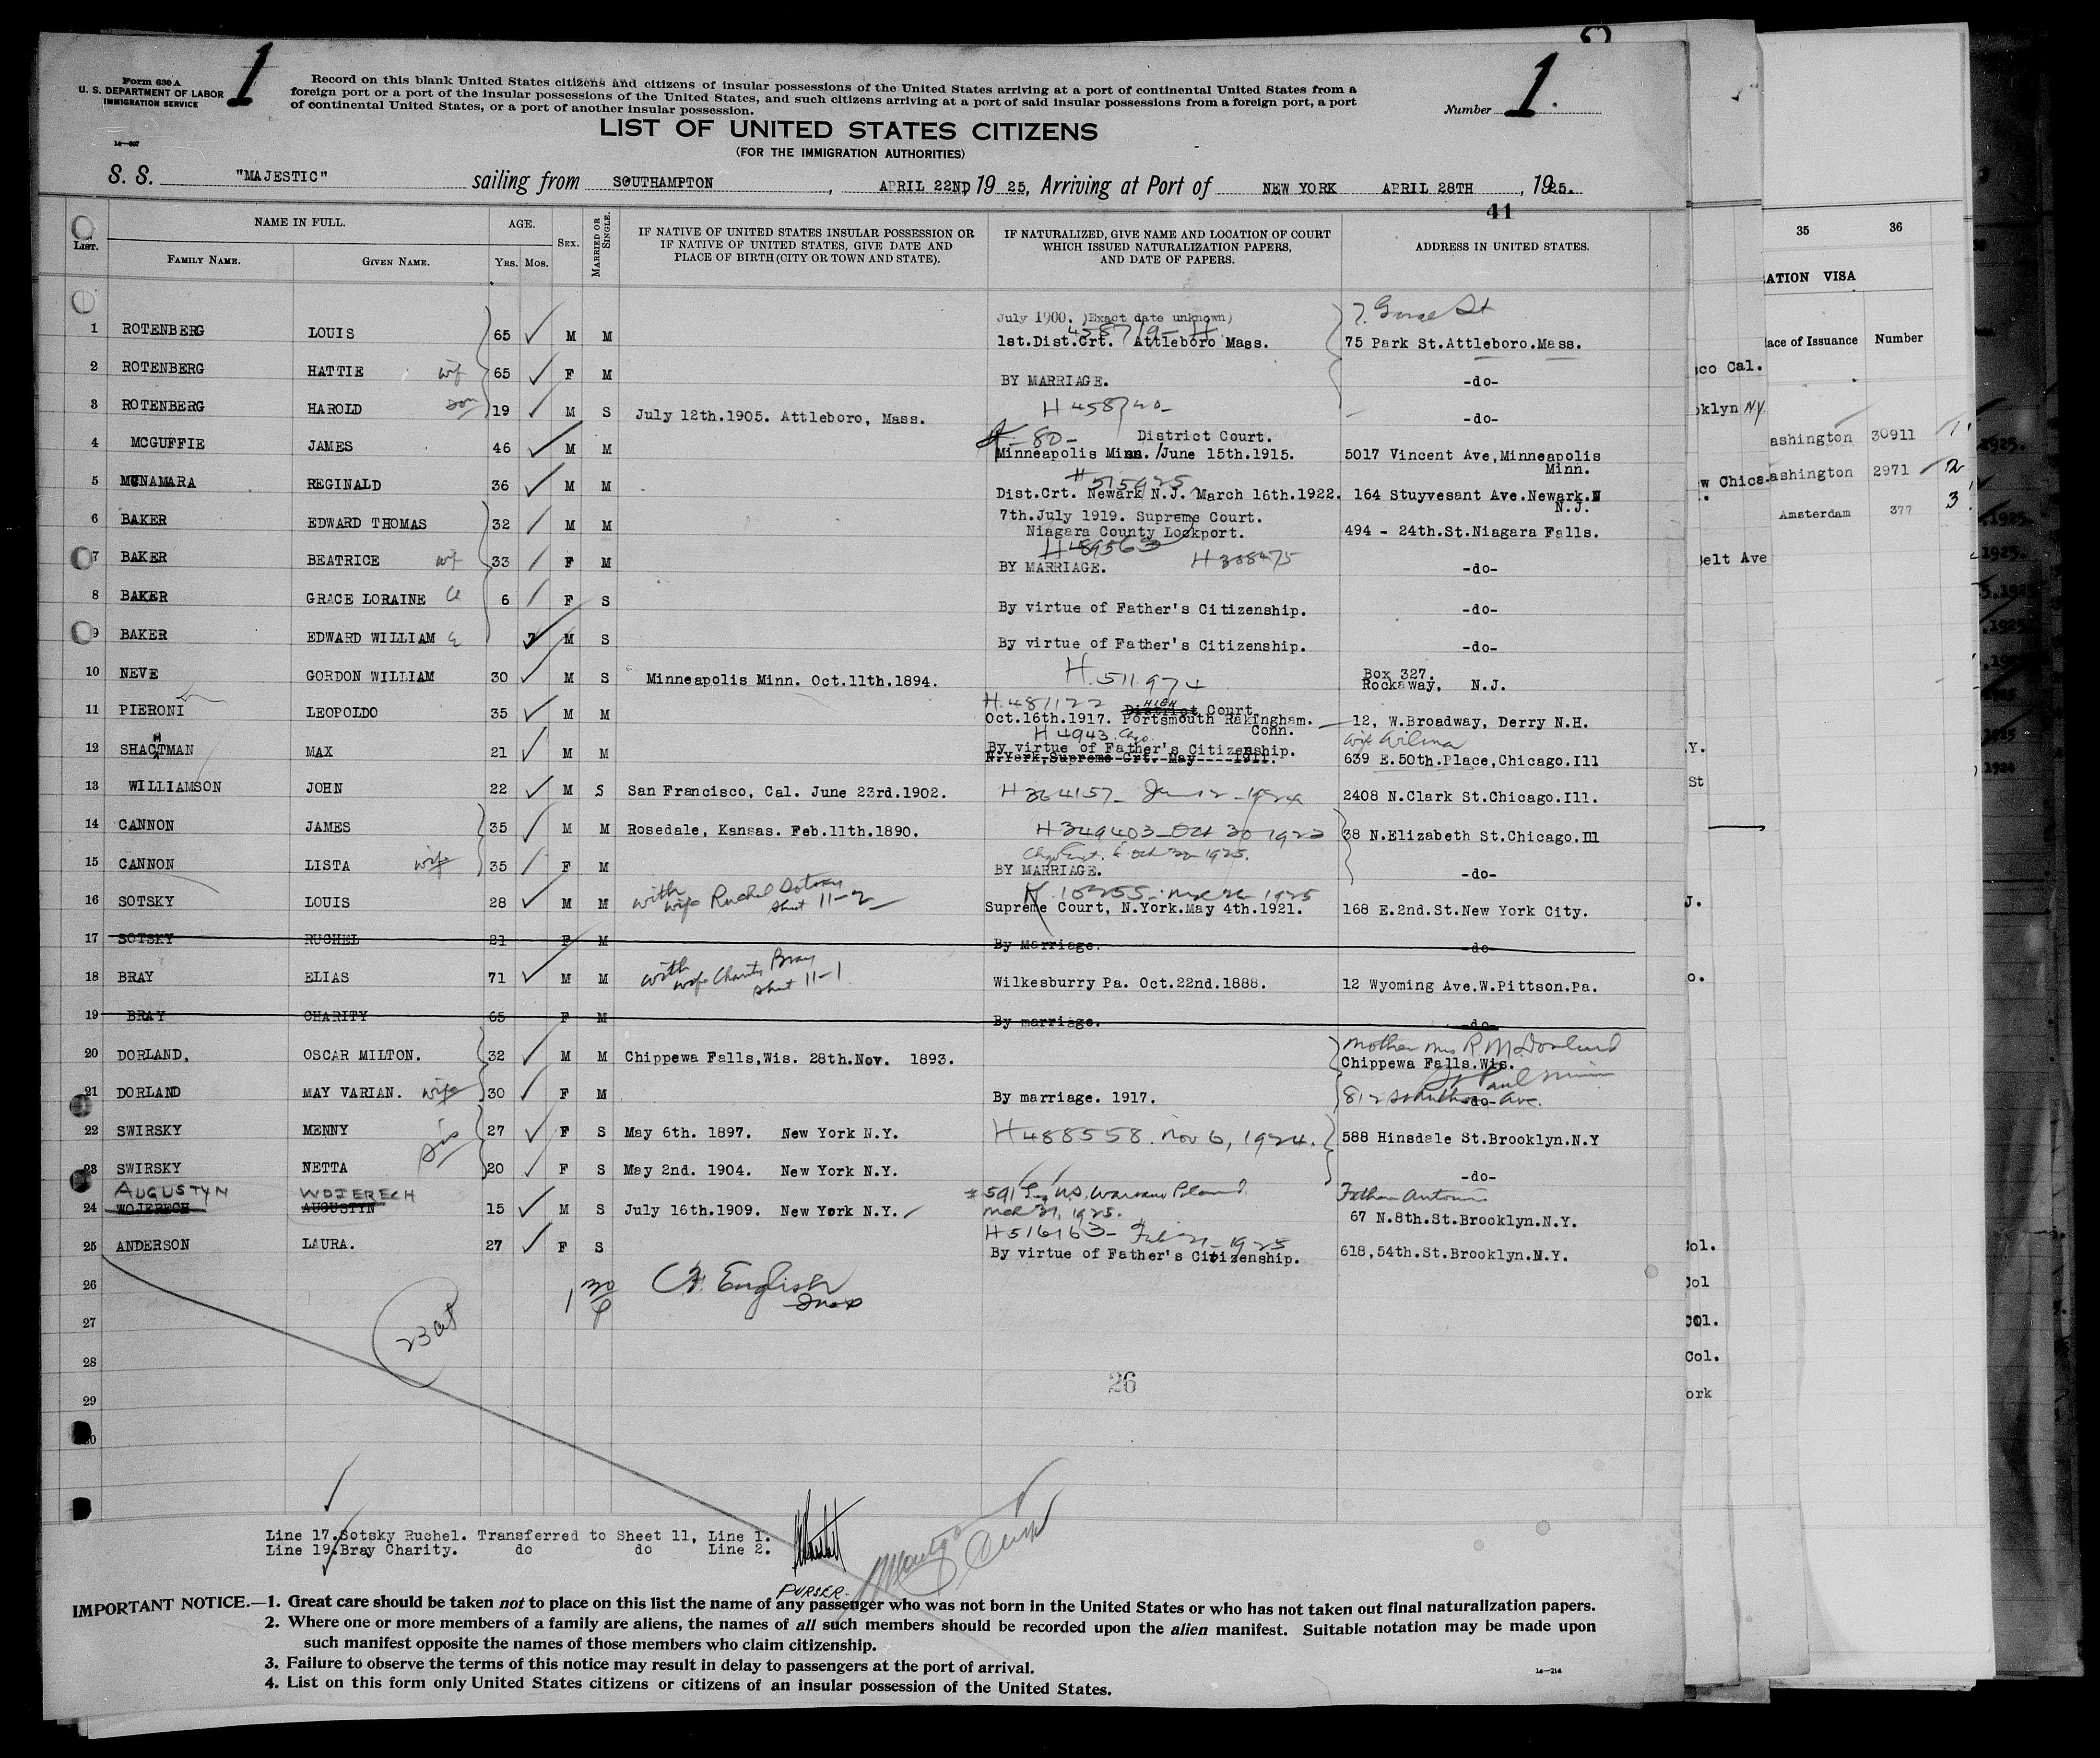 Form 630 A
U. S. DEPARTMENT OF LABOR
IMMIGRATION SERVICE
1
Record on this blank United States citizens and citizens of insular possessions of the United States arriving at a port of continental United States from a
foreign port or a port of the insular possessions of the United States, and such citizens arriving at a port of said insular possessions from a foreign port, a port
of continental United States, or a port of another insular possession.
Number 1.
LIST OF UNITED STATES CITIZENS
(FOR THE IMMIGRATION AUTHORITIES)
S. S. "MAJESTIC" sailing from SOUTHAMPTON, APRIL 22ND, 19 25, Arriving at Port of NEW YORK APRIL 28TH, 1925.
41
LIST. NAME IN FULL. AGE. SEX. MARRIED OR SINGLE. IF NATIVE OF UNITED STATES INSULAR POSSESSION OR IF NATIVE OF UNITED STATES, GIVE DATE AND PLACE OF BIRTH (CITY OR TOWN AND STATE). IF NATURALIZED, GIVE NAME AND LOCATION OF COURT WHICH ISSUED NATURALIZATION PAPERS, AND DATE OF PAPERS. ADDRESS IN UNITED STATES.
FAMILY NAME. GIVEN NAME. YRS. MOS.
July 1900. )Exact date unknown)
1 ROTENBERG LOUIS 65 M M 1st.Dist.Crt. Attleboro Mass. 75 Park St.Attleboro.Mass.
2 ROTENBERG HATTIE wf 65 F M BY MARRIAGE. -do-
3 ROTENBERG HAROLD son 19 M S July 12th.1905. Attleboro, Mass. H 458720 -do-
80- District Court.
4 MCGUFFIE JAMES 46 M M Minneapolis Minn. June 15th.1915. 5017 Vincent Ave,Minneapolis
Minn.
# 515925
5 MCNAMARA REGINALD 36 M M Dist.Crt. Newark N.J. March 16th.1922. 164 Stuyvesant Ave.Newark.
N.J.
7th.July 1919. Supreme Court.
6 BAKER EDWARD THOMAS 32 M M Niagara County Lockport. 494 - 24th.St.Niagara Falls.
H 489563
7 BAKER BEATRICE wf 33 F M BY MARRIAGE. H 388475 -do-
8 BAKER GRACE LORAINE 6 F S By virtue of Father's Citizenship. -do-
9 BAKER EDWARD WILLIAM 7 M S By virtue of Father's Citizenship. -do-
10 NEVE GORDON WILLIAM 30 M S Minneapolis Minn. Oct.11th.1894. H.511974 Box 327.
Rockaway, N.J.
H.481122 District HIGH Court.
11 PIERONI LEOPOLDO 35 M M Oct.16th.1917. Portsmouth Rakingham. 12, W.Broadway, Derry N.H.
Conn.
H 4943 Cgo. wife Wilma
12 SHACHTMAN MAX 21 M M By virtue of Father's Citizenship. 639 E.50th.Place,Chicago.Ill
N.York,Supreme Crt. May----1911.
13 WILLIAMSON JOHN 22 M S San Francisco, Cal. June 23rd.1902. H 364157 - Jan 12 - 1924 2408 N.Clark St.Chicago.Ill.
14 CANNON JAMES 35 M M Rosedale, Kansas. Feb.11th.1890. H 349403 - Oct 30 1922 38 N.Elizabeth St.Chicago.Ill
15 CANNON LISTA wife 35 F M BY MARRIAGE. -do-
16 SOTSKY LOUIS 28 M M with wife Ruchel Sotsky sheet 11-2 Supreme Court, N.York.May 4th.1921. 168 E.2nd.St.New York City.
17 SOTSKY RUCHEL 21 F M By Marriage. -do-
18 BRAY ELIAS 71 M M with wife Charity Bray sheet 11-1 Wilkesburry Pa. Oct.22nd.1888. 12 Wyoming Ave.W.Pittson.Pa.
19 BRAY CHARITY 65 F M By marriage. -do-
Mother Mrs R M Dorland
20 DORLAND, OSCAR MILTON. 32 M M Chippewa Falls,Wis. 28th.Nov. 1893. Chippewa Falls.Wis.
St Paul Minn
21 DORLAND MAY VARIAN. wife 30 F M By marriage. 1917. -do- Ave.
22 SWIRSKY MENNY 27 F S May 6th. 1897. New York N.Y. H 488558. Nov 6, 1924. 588 Hinsdale St.Brooklyn.N.Y
sis
23 SWIRSKY NETTA 20 F S May 2nd. 1904. New York N.Y. -do-
AUGUSTYN WOJERECH # 591 U.S. Warsaw Poland. Father Antoni
24 WOJERECH AUGUSTYN 15 M S July 16th.1909. New York N.Y. Mch 21, 1925. 67 N.8th.St.Brooklyn.N.Y.
H 516163 - Feb 21 - 1925
25 ANDERSON LAURA. 27 F S By virtue of Father's Citizenship. 618,54th.St.Brooklyn.N.Y.
26 English
27
28
26
29
30
Line 17.Sotsky Ruchel. Transferred to Sheet 11, Line 1.
Line 19.Bray Charity. do do Line 2.
PURSER.
IMPORTANT NOTICE.—1. Great care should be taken not to place on this list the name of any passenger who was not born in the United States or who has not taken out final naturalization papers.
2. Where one or more members of a family are aliens, the names of all such members should be recorded upon the alien manifest. Suitable notation may be made upon
such manifest opposite the names of those members who claim citizenship.
3. Failure to observe the terms of this notice may result in delay to passengers at the port of arrival.
14—214
4. List on this form only United States citizens or citizens of an insular possession of the United States.
35 36
ATION VISA
ace of Issuance Number
ashington 30911
ashington 2971 2
Amsterdam 377 3
co Cal.
oklyn NY
w Chica.
elt Ave
Y.
St
J.
o.
Col.
Col
Col.
Col.
ork